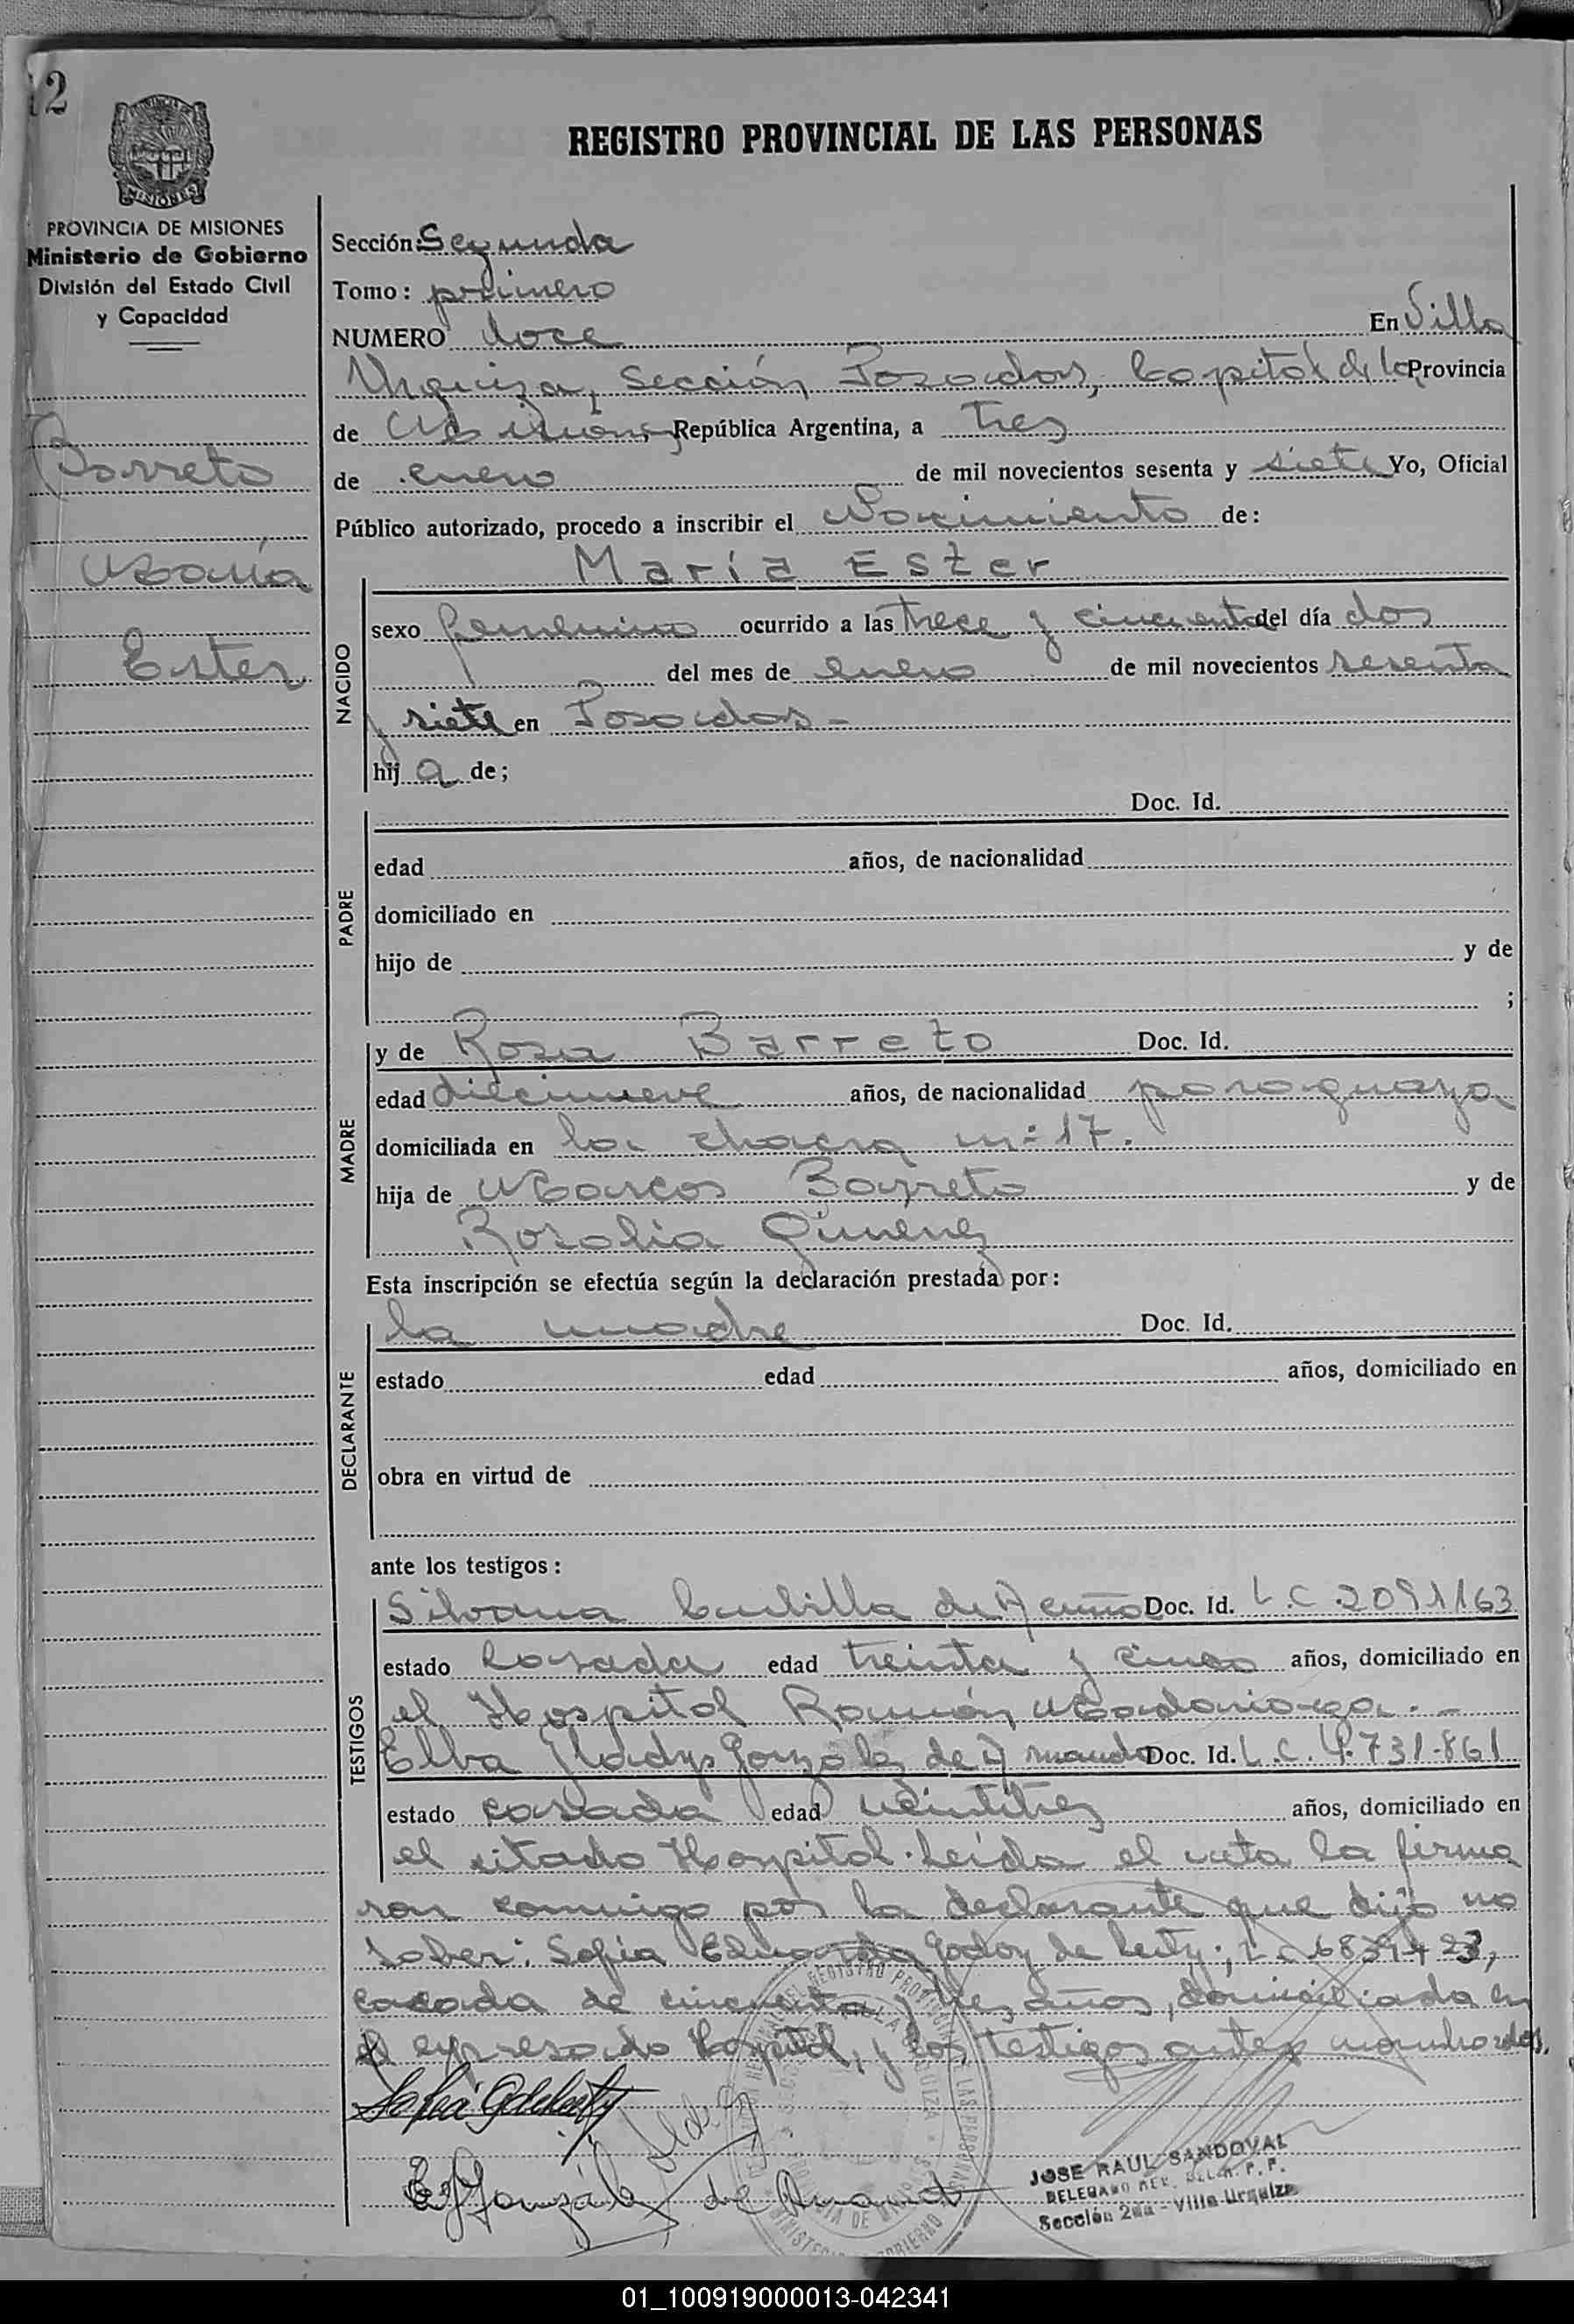 12
REGISTRO PROVINCIAL DE LAS PERSONAS
PROVINCIA DE MISIONES
Ministerio de Gobierno
División del Estado Civil
y Capacidad
Barreto
María
Ester
Sección: Segunda
Tomo: primero
NUMERO doce En Villa
Urquiza, Sección Posadas, Capital de la Provincia
de Misiones, República Argentina, a tres
de enero de mil novecientos sesenta y siete Yo, Oficial
Público autorizado, procedo a inscribir el Nacimiento de:
María Ester
NACIDO
sexo femenino ocurrido a las trece y cincuenta del día dos
del mes de enero de mil novecientos sesenta
y siete en Posadas-
hij a de;
PADRE
Doc. Id.
edad años, de nacionalidad
domiciliado en
hijo de y de
;
MADRE
y de Rosa Barreto Doc. Id.
edad diecinueve años, de nacionalidad paraguaya
domiciliada en la chacra nº 17.
hija de Marcos Barreto y de
Rosalia Gimenez
Esta inscripción se efectúa según la declaración prestada por:
DECLARANTE
la madre Doc. Id.
estado edad años, domiciliado en
obra en virtud de
ante los testigos:
TESTIGOS
Silvana de Doc. Id. L.C. 2091163
estado casada edad treinta y cinco años, domiciliado en
el Hospital Ramón Madariaga.-
Elba Gladys González de Doc. Id. L.C. 4.731.861
estado casada edad veintitres años, domiciliado en
el citado Hospital. Leída el acta la firma
ron conmigo por la declarante que dijo no
saber: Sofia Eduarda Godoy de
casada de cincuenta y tres años, domiciliada en
el expresado Hospital, y los testigos antes
JOSE RAUL SANDOVAL
Sección 2da - Villa Urquiza
01_100919000013-042341